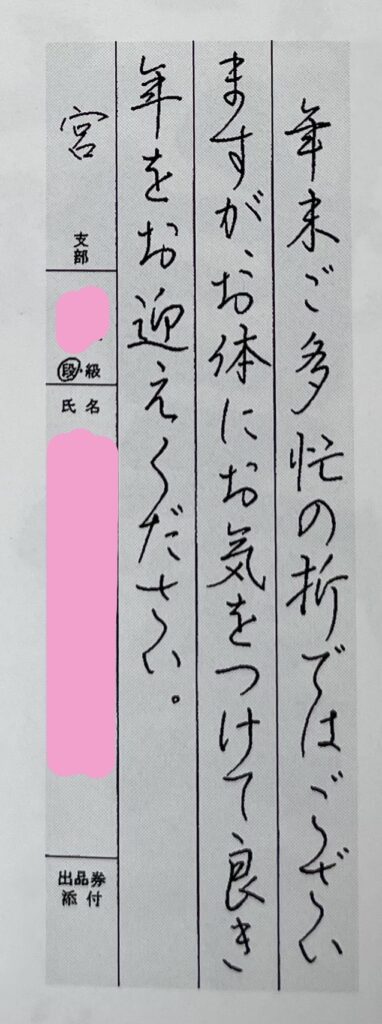 年末ご多忙の折ではござい
ますが、お体にお気をつけて良き
年をお迎えください。
宮
支部
段・級
氏名
出品券
添付